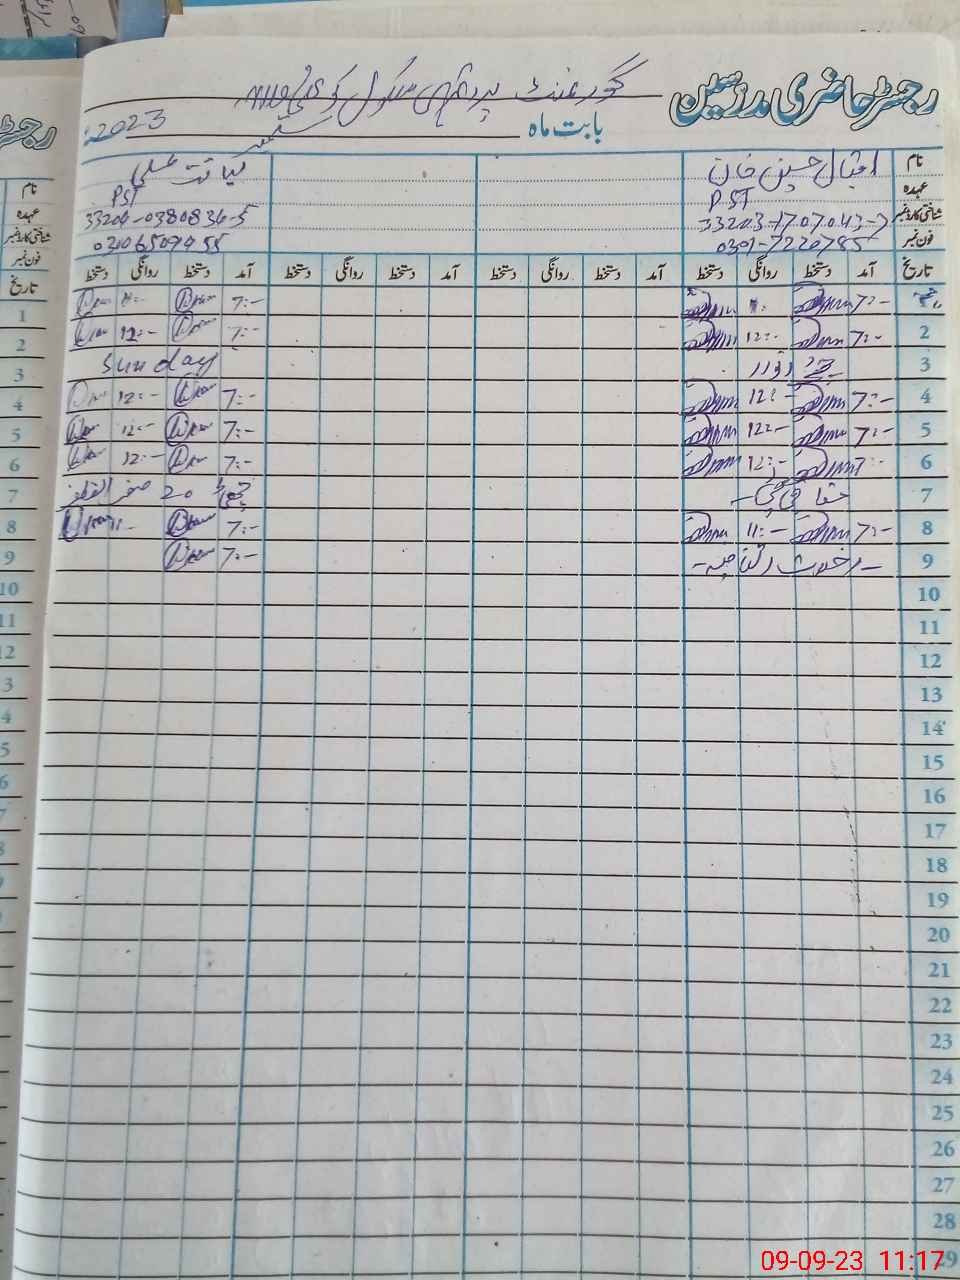 رجسٹر حاضری مدرسین
گورنمنٹ پرائمری سکول
بابت ماہ ستمبر 2023ء
نام اقبال حسین خان لیاقت علی
عہدہ PST PST
شناختی کارڈ نمبر 33203-1707043-7 33204-0380836-5
فون نمبر 0301-7220785 03106507455
تاریخ آمد دستخط روانگی دستخط آمد دستخط روانگی دستخط آمد دستخط روانگی دستخط آمد دستخط روانگی دستخط
7:- 11:- 7:- 11:-
2 7:- 12:- 7:- 12:-
3 اتوار Sunday
4 7:- 12:- 7:- 12:-
5 7:- 12:- 7:- 12:-
6 7:- 12:- 7:- 12:-
7 مقامی چھٹی - چھٹی 20 صفر المظفر
8 7:- 11:- 7:- 11:-
9 - رخصت اتفاقیہ - 7:-
10
11
12
13
14
15
16
17
18
19
20
21
22
23
24
25
26
27
28
29
رجسٹر
نام
عہدہ
شناختی کارڈ نمبر
فون نمبر
تاریخ
1
2
3
4
5
6
7
8
9
10
11
12
09-09-23 11:17